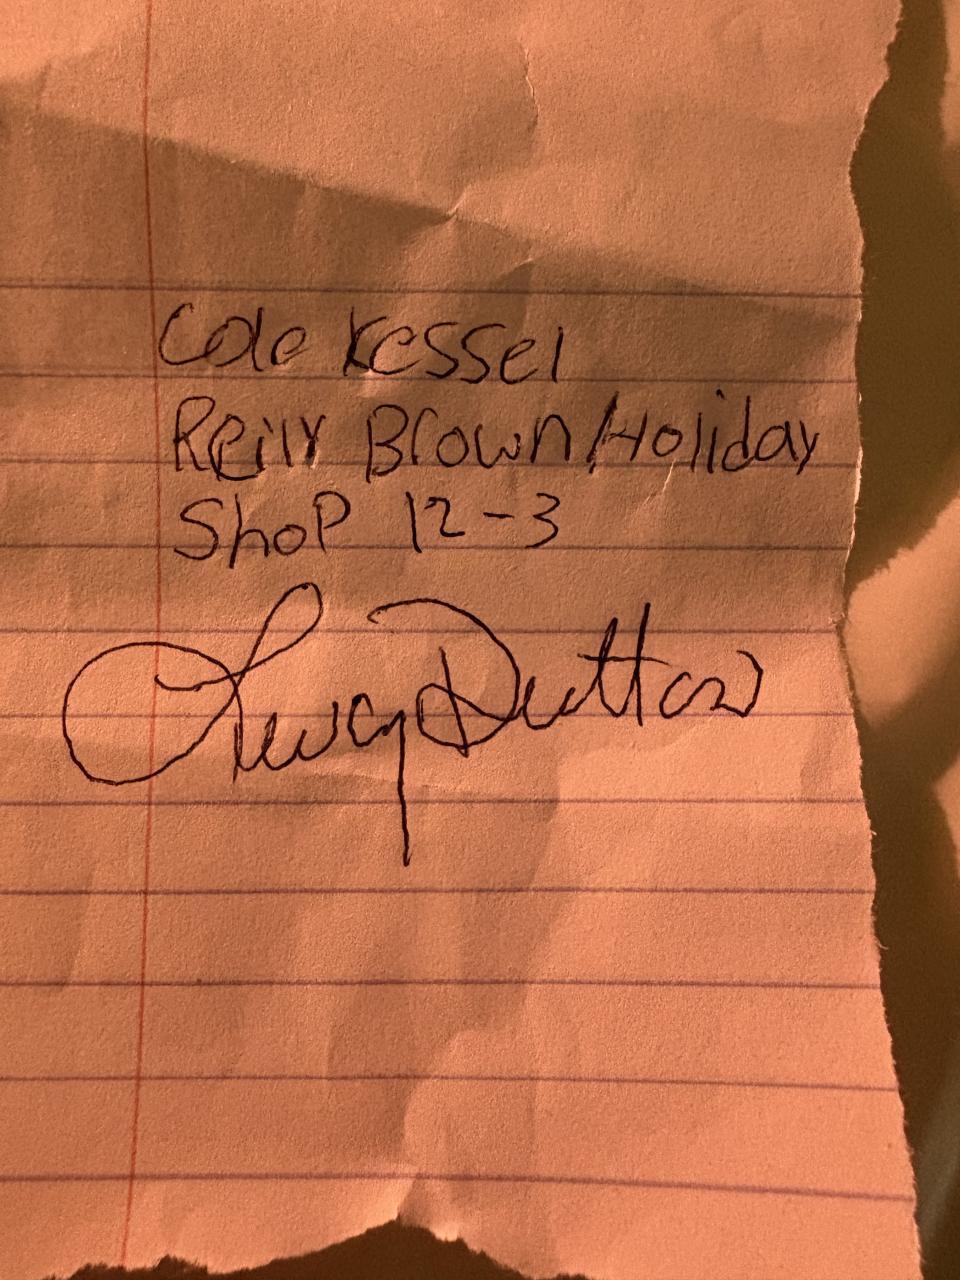 Cole Kessel
Reily Brown/Holiday
Shop 12-3
Dutton